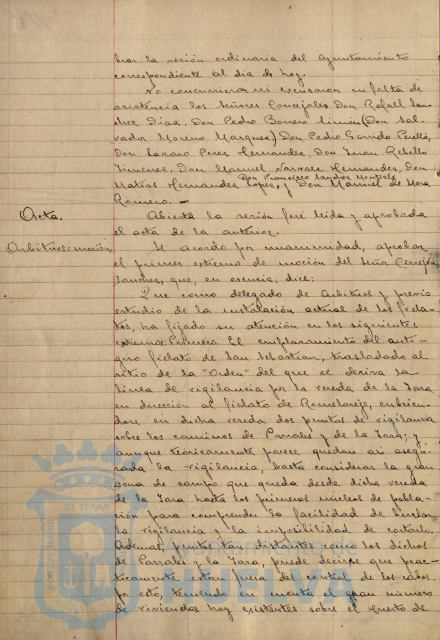 brar la sesión ordinaria del Ayuntamiento
correspondiente al día de hoy.
No concurrieron ni excusaron su falta de
asistencia los Señores Concejales Don Rafael San-
chez Diaz, Don Pedro Borrero Limón (Don Sal-
vador Moreno Marquez) Don Pedro Garrido Perelló,
Don Lázaro Perez Hernandez, Don Juan Rebollo
Jimenez, Don Manuel Narvaez Hernandez, Don
Don Francisco Sanchez
Matías Hernandez Lopez, y Don Manuel de Mora
Romero. —
Acta.
Abierta la sesión fué leida y aprobada
el acta de la anterior.
Arbitrios: moción.
Se acordó por unanimidad, aprobar
el primer extremo de moción del Señor Cerrejón
Sanchez, que, en esencia, dice:
Que como delegado de Arbitrios y previo
estudio de la instalación actual de los fiela-
tos, ha fijado su atención en los siguientes
extremos: Primero. El emplazamiento del anti-
guo fielato de San Sebastian, trasladado al
sitio de la "Orden" del que se deriva la
linea de vigilancia por la vereda de la Jara
en dirección al fielato de Romeralejo, embrien-
dose en dicha vereda dos puntos de vigilancia
sobre los caminos de Parrales y de la Jara; y
aunque teóricamente parece quedan asi asegu-
rada la vigilancia, basta considerar la gran
zona de campo que queda desde dicha vereda
de la Jara hasta los primeros nucleos de pobla-
ción para comprender la facilidad de burlar
la vigilancia y la imposibilidad de cortarlo.
Además, puntos tan distantes como los dichos
de Parrales y la Jara, puede decirse que prac-
ticamente estan fuera del control de los cabos,
por esto, teniendo en cuenta el gran número
de viviendas hoy existentes sobre el puerto de